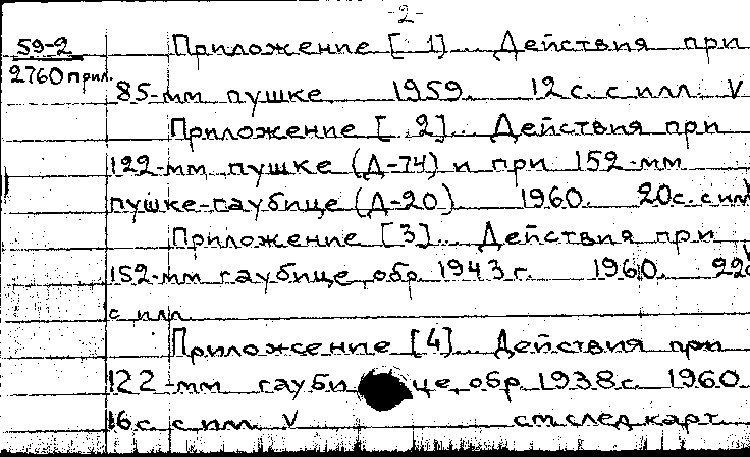 -2-
59-2 Приложение [ 1]... Действия при
2760 прил. 85-мм пушке 1959. 12 с. с илл. V
Приложение [ 2]... Действия при
122-мм пушке (Д-74) и при 152-мм
пушке-гаубице (Д-20) 1960. 20 с. с илл
Приложение [3]... Действия при
152-мм гаубице обр. 1943 г. 1960. 22с
с илл.
Приложение [4]... Действия при
122-мм гаубице, обр. 1938 г. 1960
16 с. с илл. V см. след. карт.